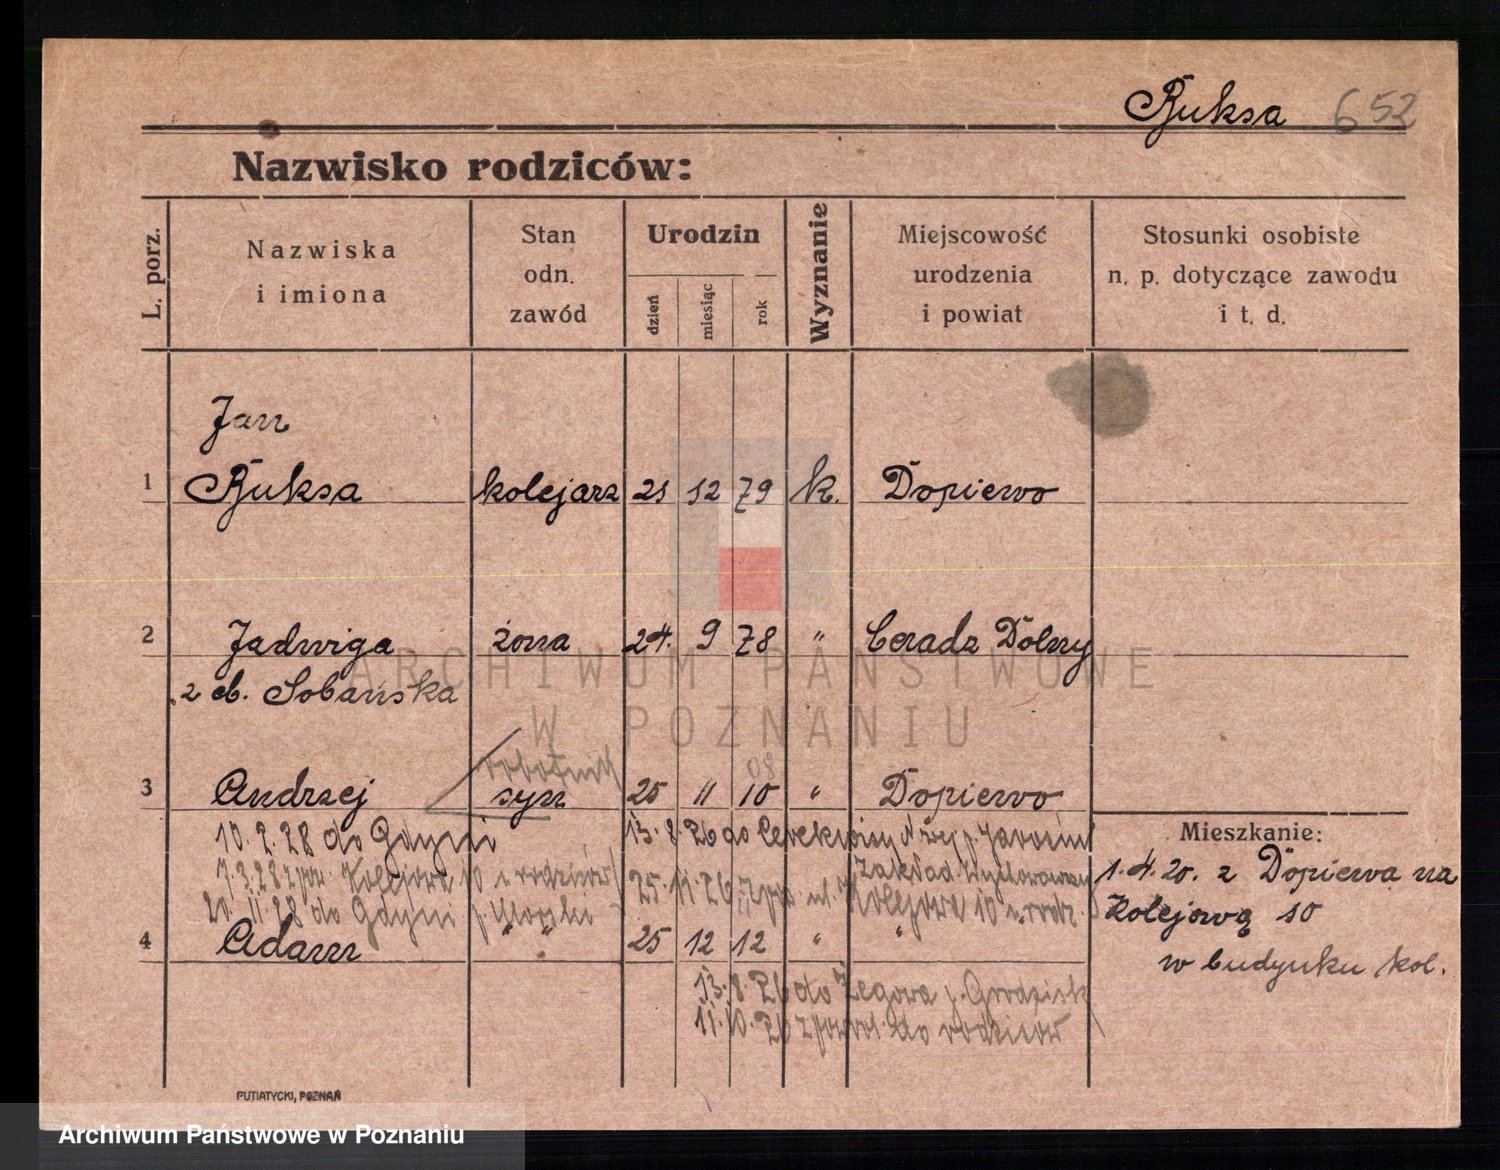 Ruksa 652
Nazwisko rodziców:
L. porz.
Nazwiska
i imiona
Stan
odn.
zawód
Urodzin
dzień
miesiąc
rok
Wyznanie
Miejscowość
urodzenia
i powiat
Stosunki osobiste
n. p. dotyczące zawodu
i t. d.
Jan
1 Ruksa kolejarz 21 12 79 k. Dopiewo
2 Jadwiga żona 24. 9 78 " Ceradz Dolny
z d. Sobańska
robotnik 08
3 Andrzej syn 25 11 10 " Dopiewo
10. 2. 28 do Gdyni 13. 8. 26 do
7.3.28 Kolejowa 10 Zakład
25. 11. 26 ul. Kolejowa 10
20. 11. 28 do Gdyni
4 Adam " " 25 12 12 " "
13. 8. 26 do Żegowa p. Grodzisk
11. 10. 26 do rodziców
Mieszkanie:
1. 4. 20. z Dopiewa na
Kolejową 10
w budynku kol.
PUTIATYCKI, POZNAŃ
ARCHIWUM PAŃSTWOWE
W POZNANIU
Archiwum Państwowe w Poznaniu